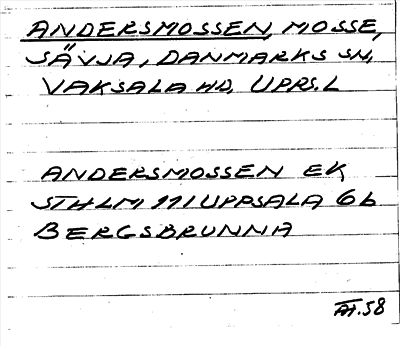 ANDERSMOSSEN, MOSSE,
SÄVJA, DANMARKS SN,
VAKSALA HD, UPPS.L
ANDERSMOSSEN EK
STHLM 111 UPPSALA 6b
BERGSBRUNNA
.58